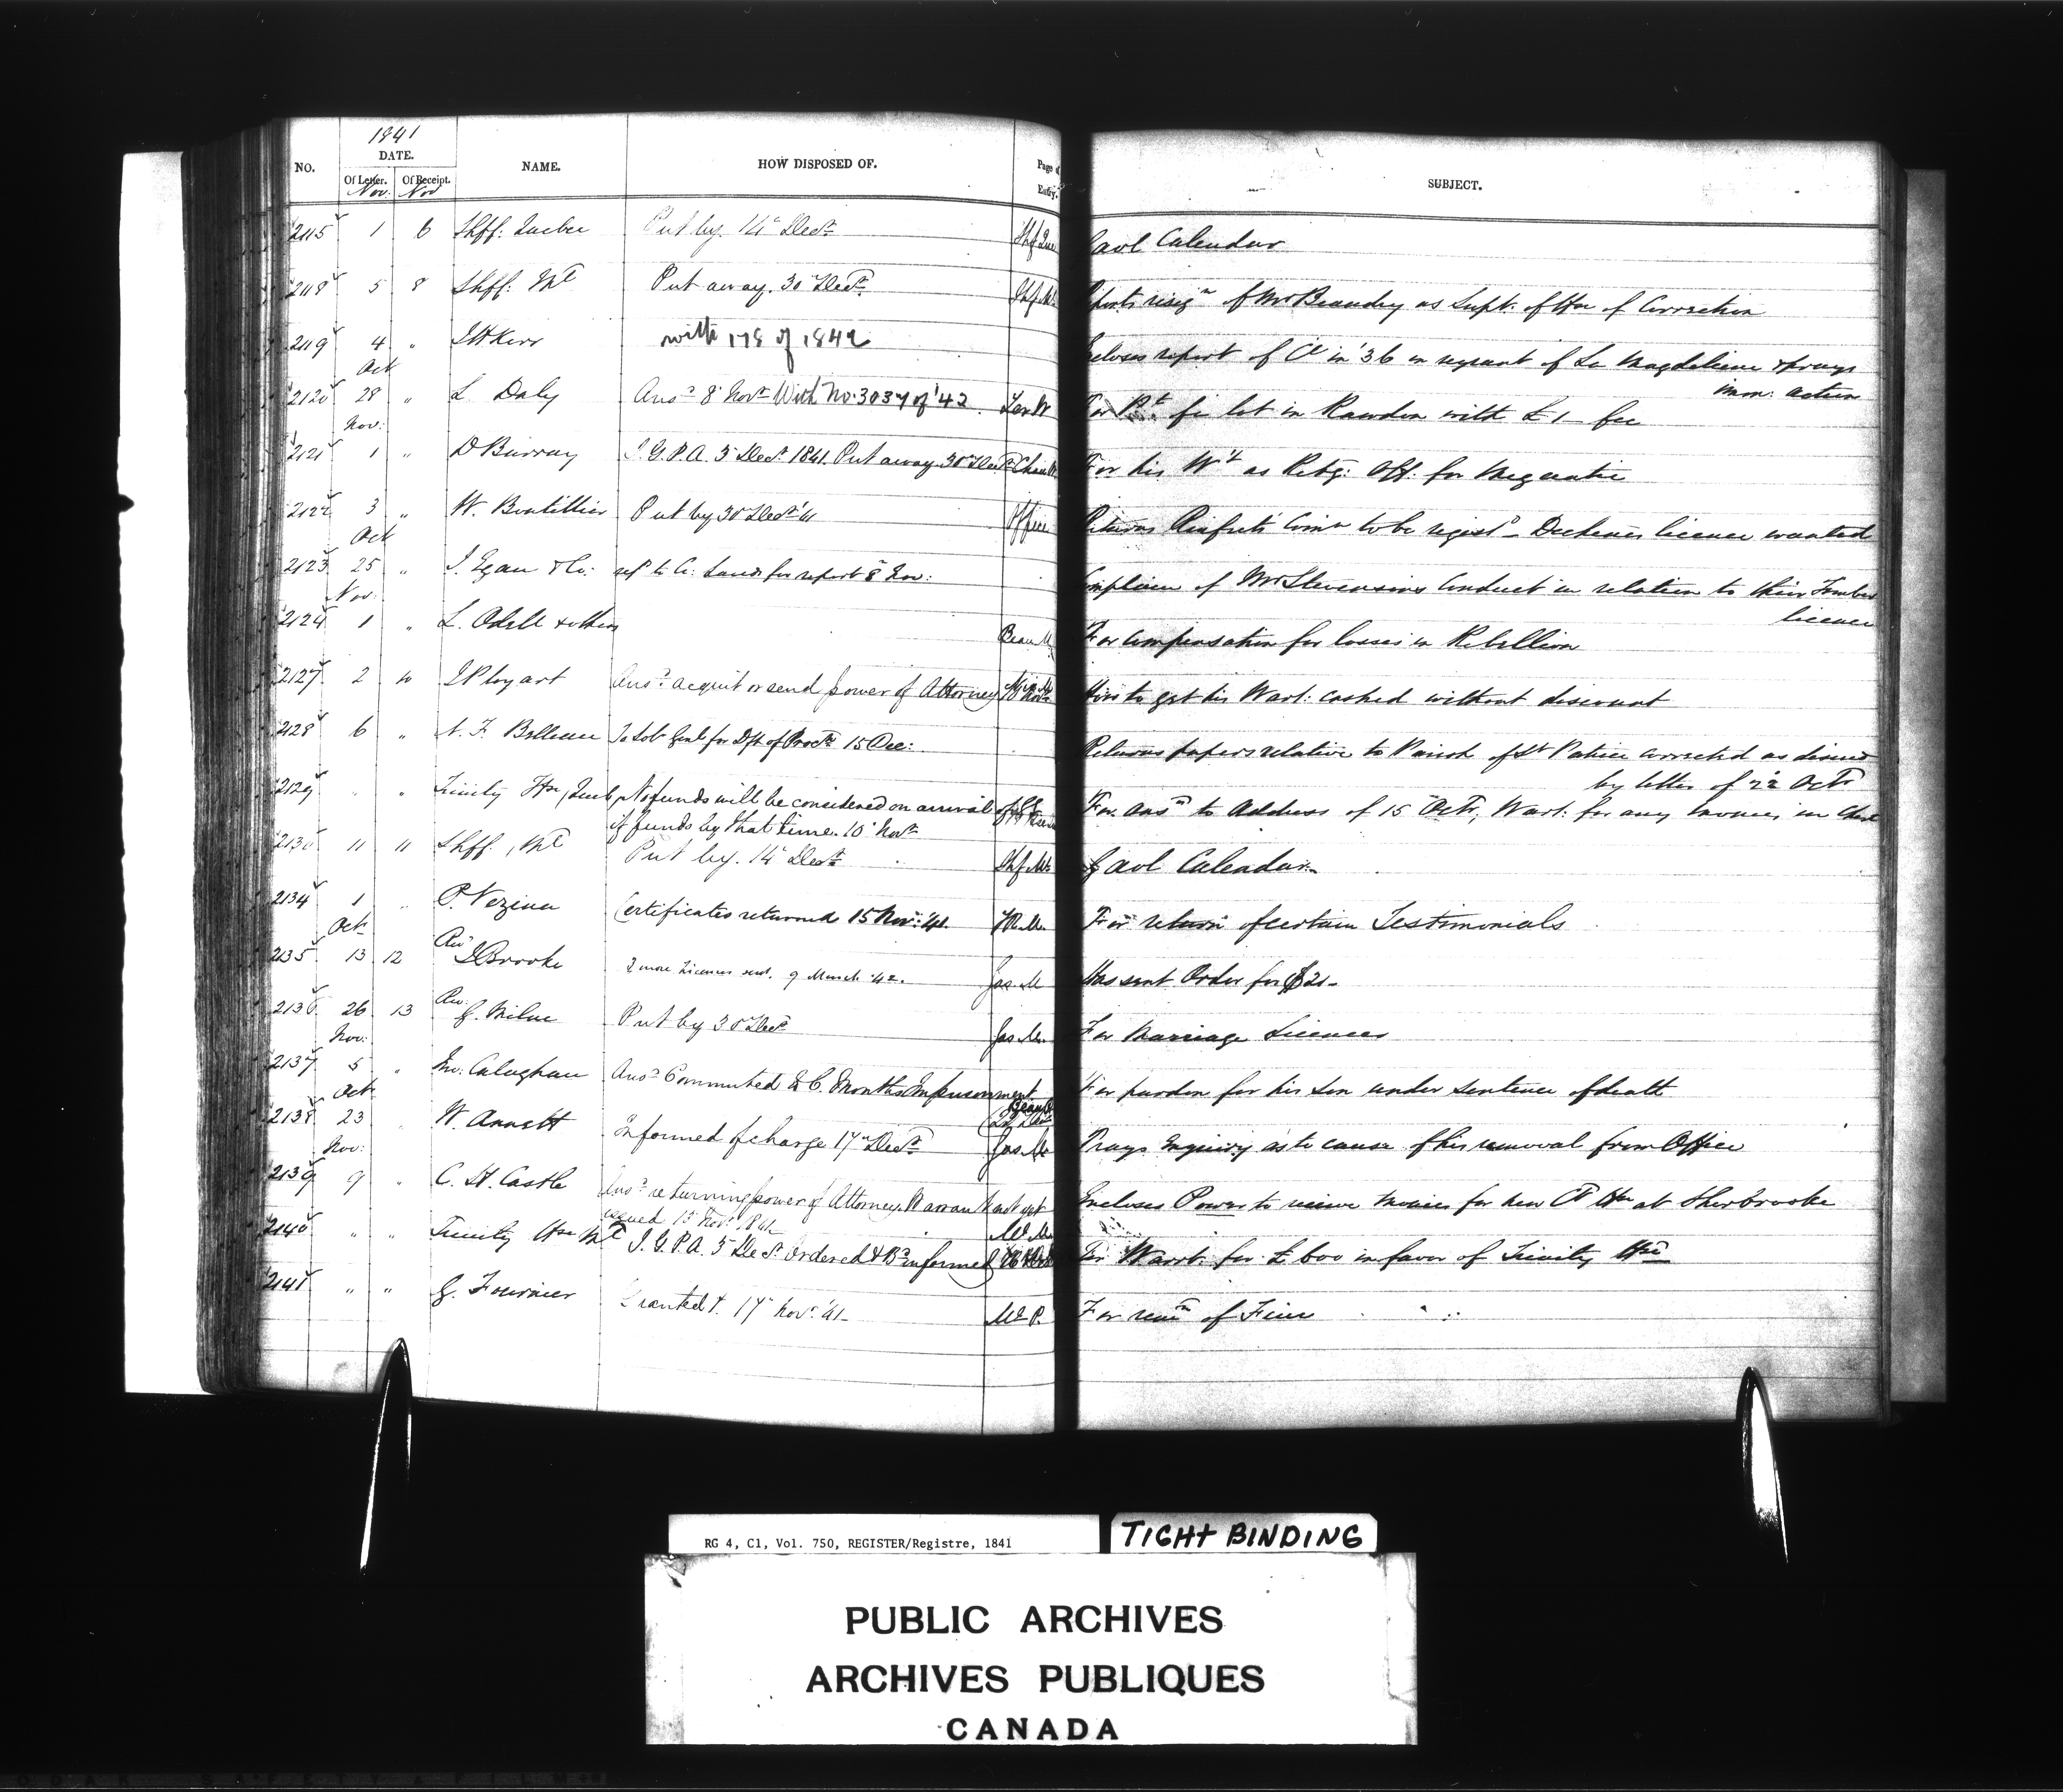 1841
NO. DATE. NAME. HOW DISPOSED OF. Page of Entry. SUBJECT.
Of Letter. Of Receipt.
Nov. Nov
2115 1 6 Shff: Quebec Put by. 14 Decr. Gaol Calendar
2118 5 8 Shff. Ml Put away. 30 Decr. Shf. M Reports resign of Mr Beaudry as Supt. of Hse of Correction
2119 4 " J H Kerr with 178 of 1842 Encloses report of in '36 in regard of La Magdeleine & prays
imm: action
Oct
2120 28 " L Daly Ansd 8 Novr With No. 3037 of '42. For Pt for lot in Rawdon with £1 fee
Nov:
2121 1 " D Burray I.G.P.A. 3 Decr. 1841. Put away 30 Decr. For his Wt as Retg: Off. for Megantic
2122 3 " W. Boutillier Put by 30 Decr '41 Office Returns Comn to be regisd - licence wanted
Oct
2123 25 " J. Egan & Co: refd to C. Lands for report 8 Nov: Complain of Mr Stevensons Conduct in relation to their Timber
licence
Nov:
2124 1 " L. Odell & others For compensation for losses in Rebellion
2127 2 10 J Ployart Ansd acquit or send power of Attorney How to get his Warrt: cashed without discount
2128 6 " N. F. Belleau To Sol: Genl for Dft of Procn 15 Dec: Returns papers relative to Parish of St Patrice corrected as desired
by letter of 22 Octr
2129 " " Trinity Hse, Queb. No funds will be considered on arrival of For Ansr to Address of 15 Octr, Warrt: for any monies in
if funds by that time. 10 Novr
2130 11 11 Shff., Ml Put by. 14 Decr Shf. M Gaol Calendar
2134 1 " P. Vezina Certificates returned 15 Nov: '41. For return of certain Testimonials
Oct
2135 13 12 Rev J Brooke 2 more Licences sent. 9 March '42. Jas. M Has sent Order for £21-
2136 26 13 Rev. G. Milne Put by 30 Decr Jas. M For Marriage Licences
Nov:
2137 5 " Calaghan Ansd Commuted to 6. Months Imprisonment For pardon for his son under sentence of death
Oct
2138 23 " W. Annett Informed of charge 17 Decr Jas. M Prays enquiry as to cause of his removal from Office
Nov:
2139 9 " C. H. Castle Ansd returning power of Attorney, Warrant not yet Encloses Power to receive monies for new Ct Hse at Sherbrooke
issued 15 Nov. 1841
2140 " " Trinity Hse Ml I.G.P.A. 5 Decr. Ordered & Bd informed For Warrt. for £600 in favor of Trinity Hse
2141 " " G. Fournier Granted. 17 Nov. '41- For remn of Fine
RG 4, C1, Vol. 750, REGISTER/Registre, 1841
TIGHT BINDING
PUBLIC ARCHIVES
ARCHIVES PUBLIQUES
CANADA